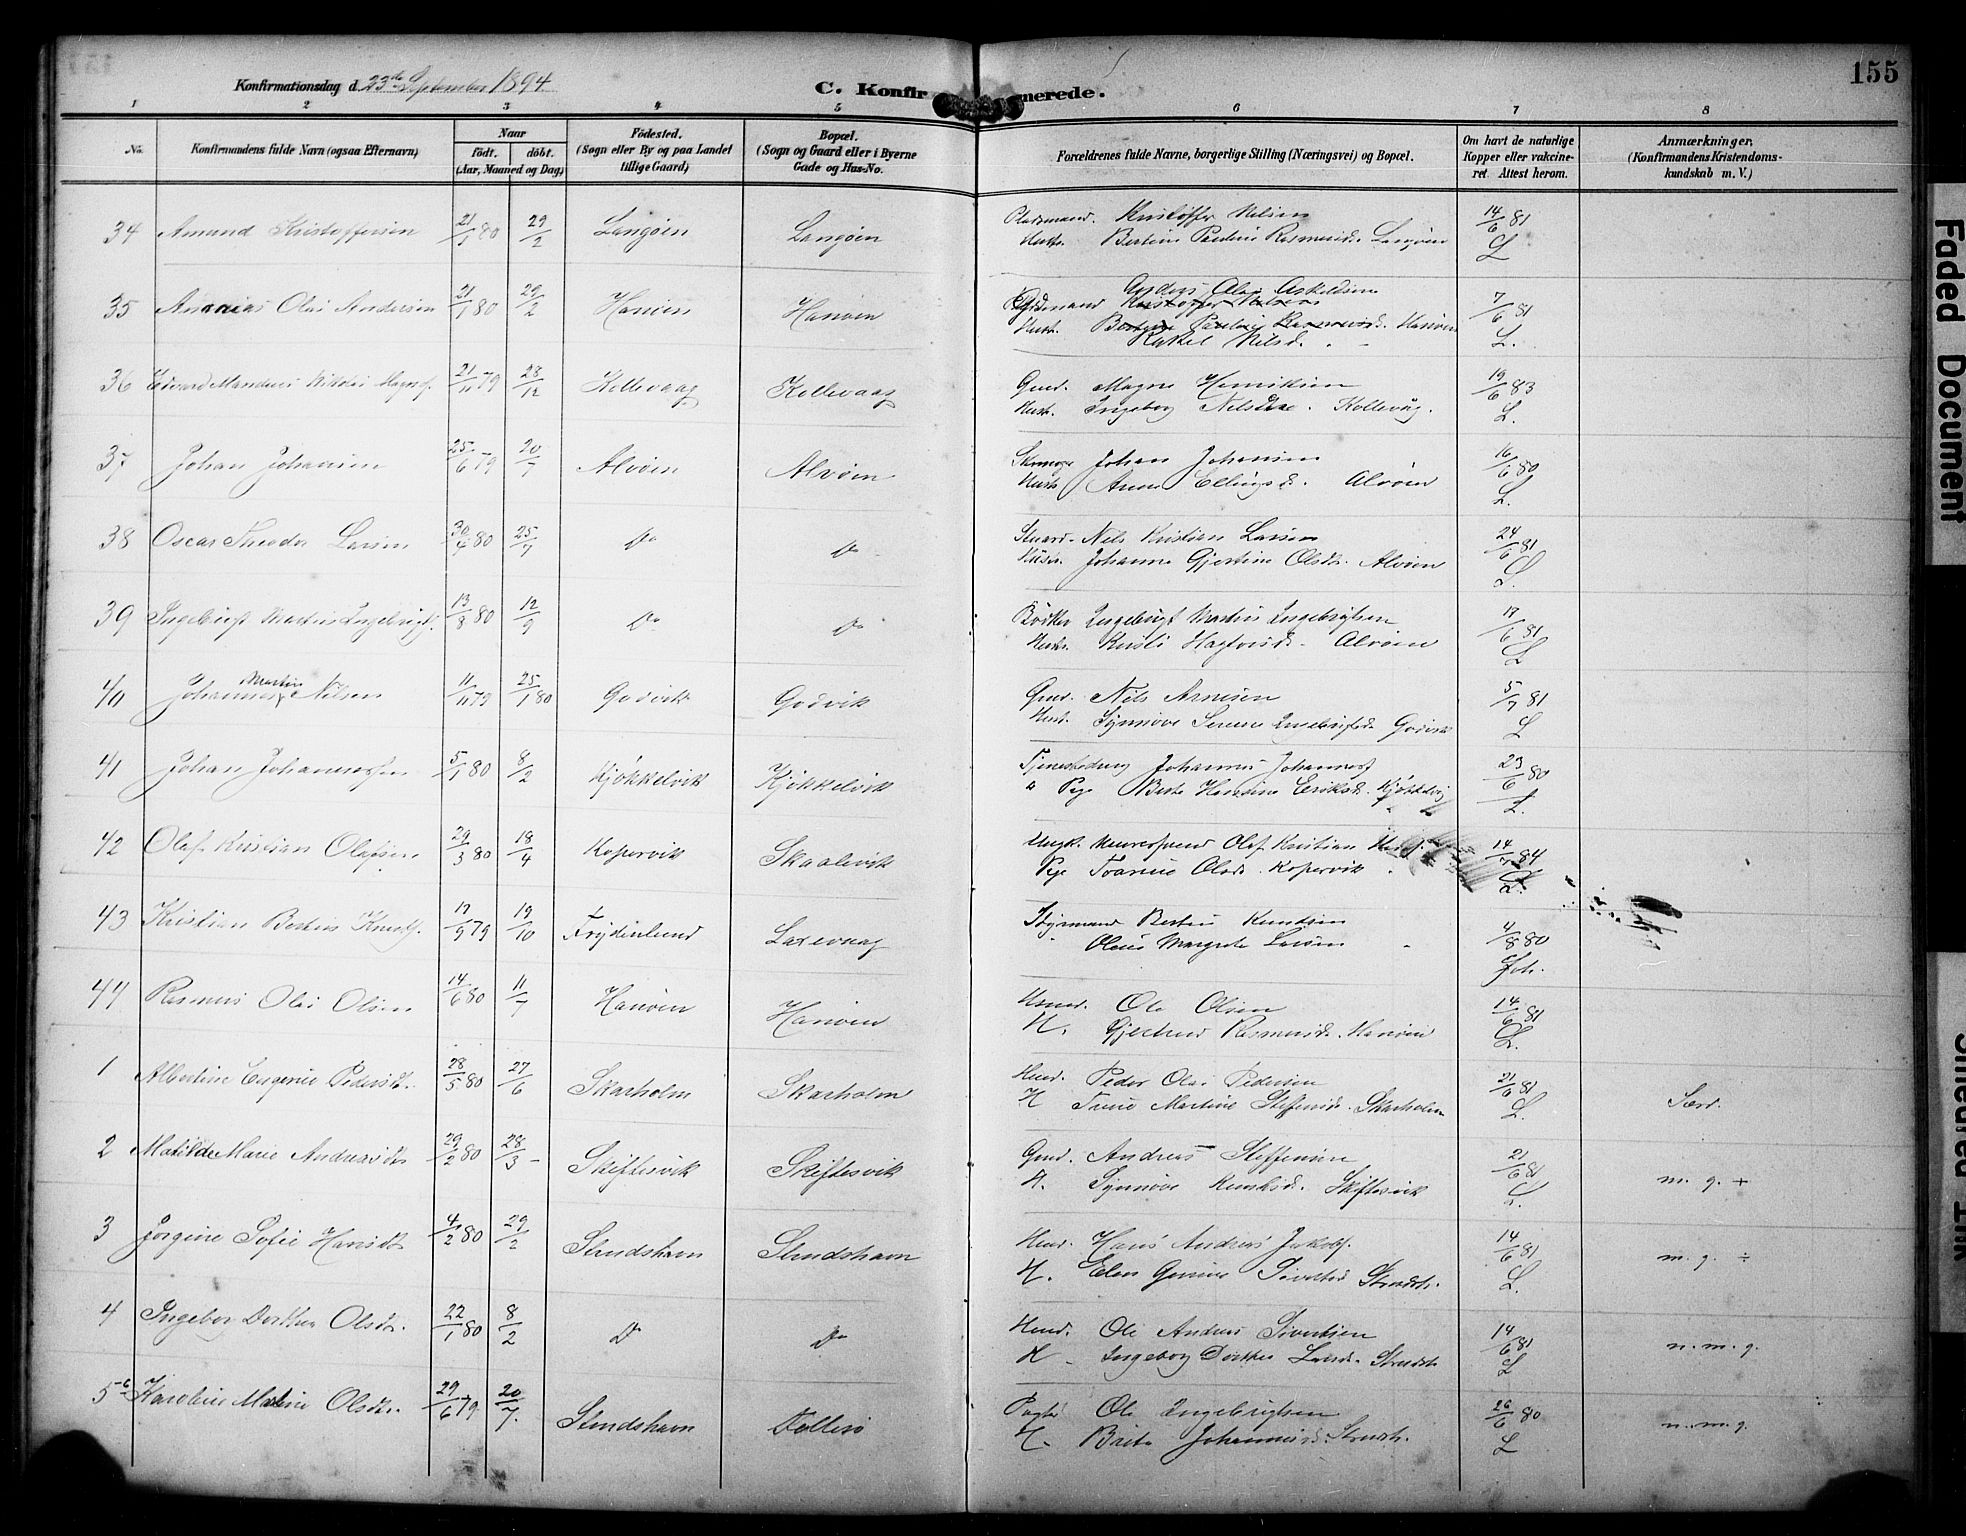 155
Konfirmationsdag d. 23de September 1894
C. Konfirmerede.
1 2 3 4 5 6 7 8
No. Konfirmandens fulde Navn (ogsaa Efternavn) Naar født. døbt. (Aar, Maaned og Dag) Födested. (Sogn eller By og paa Landet tillige Gaard) Bopæl. (Sogn og Gaard eller i Byerne Gade og Hus-No. Forældrenes fulde Navne, borgerlige Stilling (Næringsvei) og Bopæl. Om havt de naturlige Kopper eller vakcineret. Attest herom. Anmærkninger, (Konfirmandens Kristendomskundskab m. V.)
34 Amund Kristoffersen 21/1 80 29/2 Langøen Langøen Pladsmand. Kristoffer Nilsen 14/6 81
Hustr. Bertine Pauline Rasmusd. Langøen L
35 Ananias Olai Andersen 21/1 80 29/2 Hanøen Hanøen Anders Olai Askeldsen 7/6 81
Kristoffer Nilsen
Hustr. Bertine Pauline Rasmusd. Hanøen L.
Rakel Nilsd.
36 Edvard Mandrus Nikolai Magnef. 21/11 79 28/12 Kollevaag Kollevaag Gmd. Magne Henriksen 19/6 83
Hustr. Ingeborg Nilsdtr. Kollevåg. L
37 Johan Johansen 25/6 79 20/7 Alvøen Alvøen Johan Johansen 16/6 80
Hustr. Anna Ellingsd. Alvøen L
38 Oscar Theodor Larsen 30/4 80 25/7 Do Do Stuard. Nils Kristian Larsen 24/6 81
Hustr. Johanne Gjertine Olsdr. Alvøen L.
39 Ingebrigt Martin Ingebrigts. 13/8 80 12/9 Do Do Bødker Ingebrigt Martin Ingebrigtsen 17/6 81
Hustr. Kristi Alvøen L
40 Johannes Martin Nilsen 11/11 79 25/1 80 Godvik Godvik Gmd. Nils Arnesen 5/7 81
Hust. Synnøve Serine Ingebrigtsd. Godvik L
41 Johan Johannessen 5/1 80 8/2 Kjøkkelvik Kjøkkelvik Tjenestedreng Johannes Johannesf 23/6 80
a Pige Berte Hansine Eriksd. Kjøkkelvig L.
42 Olaf Kristian Olafsen 29/3 80 18/4 Kopervik Skaalevik Ungk. Olaf Kristian 14/7 84
Pige Olsd. Kopervik L.
43 Kristian Bertin Knudsf. 17/9 79 19/10 Frydenlund Laxevaag Styrmand Bertin Knudsen 4/8 80
Oline Margrete Larsen Joh.
44 Rasmus Olai Olsen 14/6 80 11/7 Hanøen Hanøen Hmd. Ole Olsen 14/6 81
H. Gjertrud Rasmusd. Hanøen L.
1 Albertine Eugenie Pedersdt. 28/5 80 27/6 Skarholm Skarholm Hmd. Peder Olai Pedersen 21/6 81
H Trine Martine Steffensd. Skarholm L. Særd.
2 Matilde Marie Andreasdtr 29/2 80 28/3 - Skiftesvik Skiftesvik Gmd. Andreas Steffensen 21/6 81
H. Synnøve Knutsd. Skiftesvik L. m. g. +
3 Jorgine Sofie Hansdt 4/2 80 29/2 Strudshavn Strudshavn Hmd. Hans Andreas Jakobf. 14/6 81
H. Elen Gurine Sivertsd Strudsh. L. m. g. ÷
4 Ingeborg Dorthea Olsdtr. 22/1 80 8/2 Do Do Hmd. Ole Andreas Sivertsen 14/6 81
H Ingeborg Dorthea Larsd. Strudsh L n. m. g.
5 Karoline Maline Olsdtr. 29/6 79 20/7. Strudshavn Follesø Ole Ingebrigtsen 26/6 80
H. Brita Johannesd. Strudsh. L n. m. g.
Faded Document